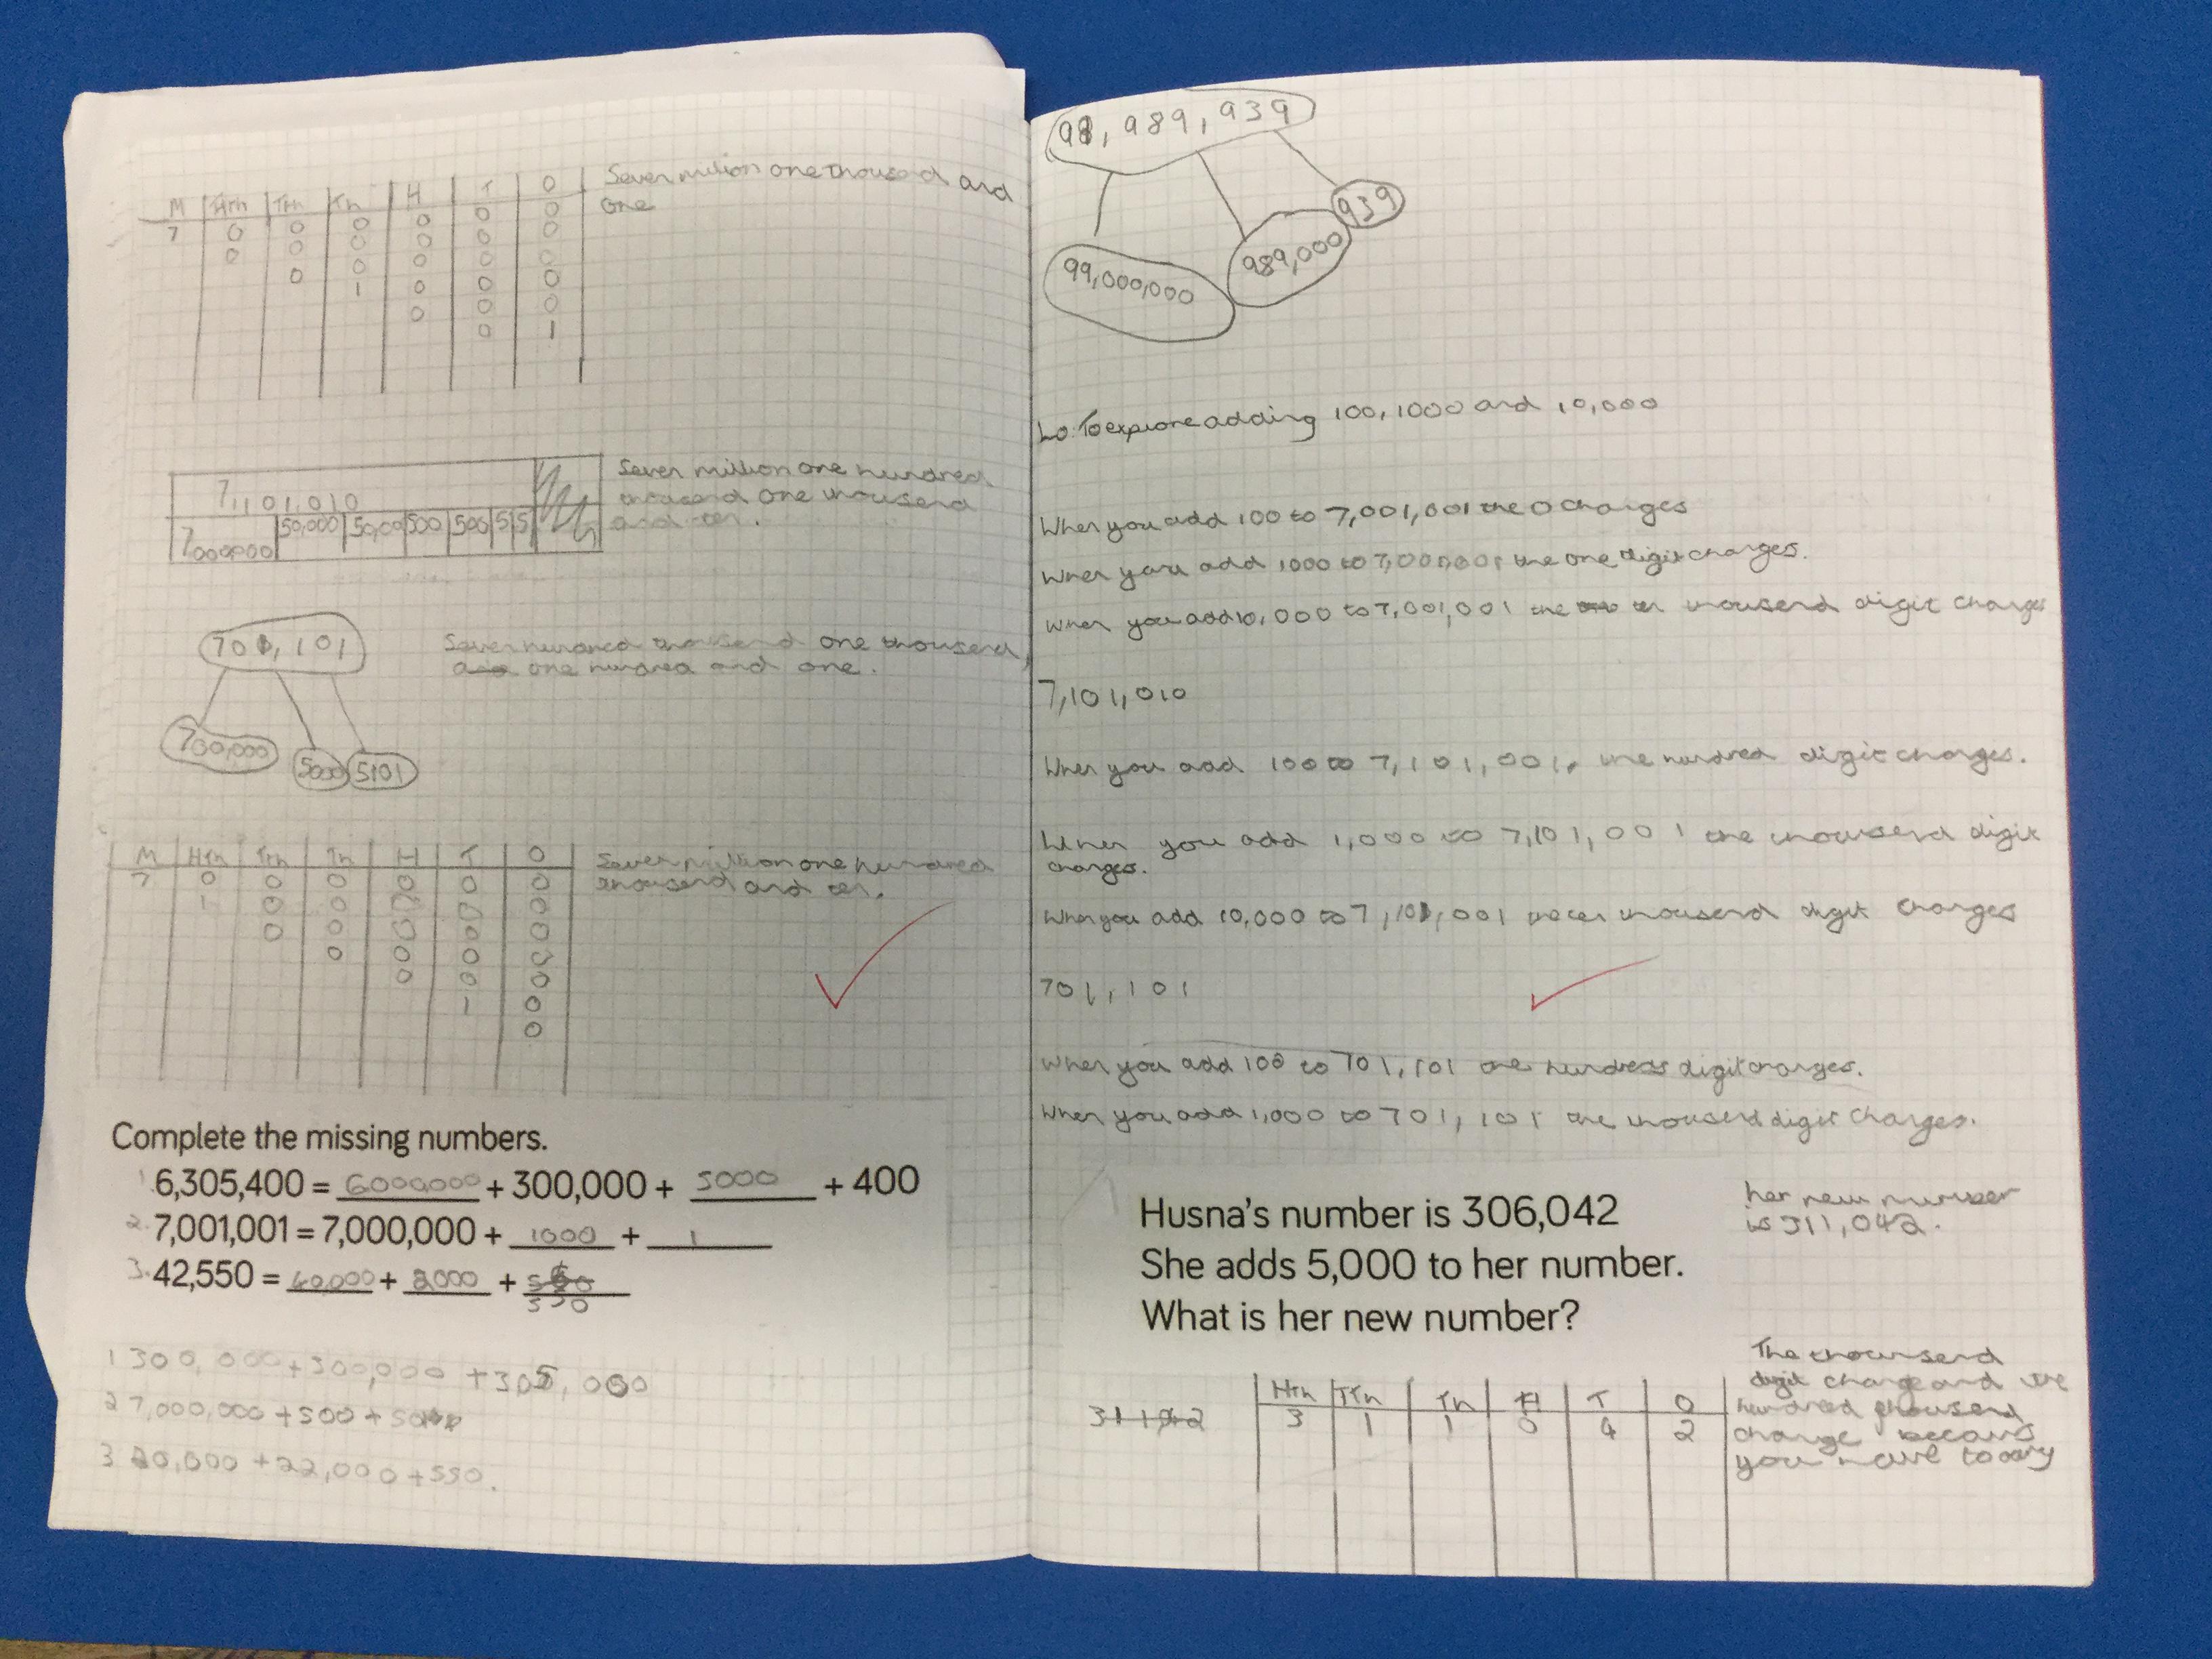 M HTh TTh Th H T O
7 0 0 0 0 0 0
0 0 0 0 0 0
0 0 0 0 0
1 0 0 0
0 0 0
0 1
Seven million one thousend and
one
7,101,010
7000000 50,000 50,00 500 500 5 5
Seven million one hundred
thousend one thousend
and ten.
701,101
700,000 5000 5101
Seven hundred thousend one thousend,
one hundred and one.
M HTh TTh Th H T O
7 0 0 0 0 0 0
1 0 0 0 0 0
0 0 0 0 0
0 0 0 0
0 0 0
1 0
0
Seven million one hundred
thousend and ten.
Complete the missing numbers.
1. 6,305,400 = 6000000 + 300,000 + 5000 + 400
2. 7,001,001 = 7,000,000 + 1000 + 1
3. 42,550 = 40,000 + 2000 + 550
1 300,000 + 300,000 + 305,000
2 7,000,000 + 500 +
3 20,000 + 22,000 + 550.
98,989,939
99,000,000 989,000 939
Lo: To explore adding 100, 1000 and 10,000
When you add 100 to 7,001,001 the 0 changes
When you add 1000 to the one digit changes.
When you add 10,000 to 7,001,001 the ten thousend digit changes
7,101,010
When you add 100 to 7,101,001, the hundred digit changes.
When you add 1,000 to 7,101,001 the thousend digit
changes.
When you add 10,000 to 7,101,001 the ten thousend digit changes
701,101
When you add 100 to 701,101 the hundreds digit changes.
When you add 1,000 to 701,101 the thousend digit changes.
Husna's number is 306,042
She adds 5,000 to her number.
What is her new number?
her new number
is 311,042.
31142
HTh TTh Th H T O
3 1 1 0 4 2
The thousend
digit change and the
hundred thousend
change becaus
you have to cary